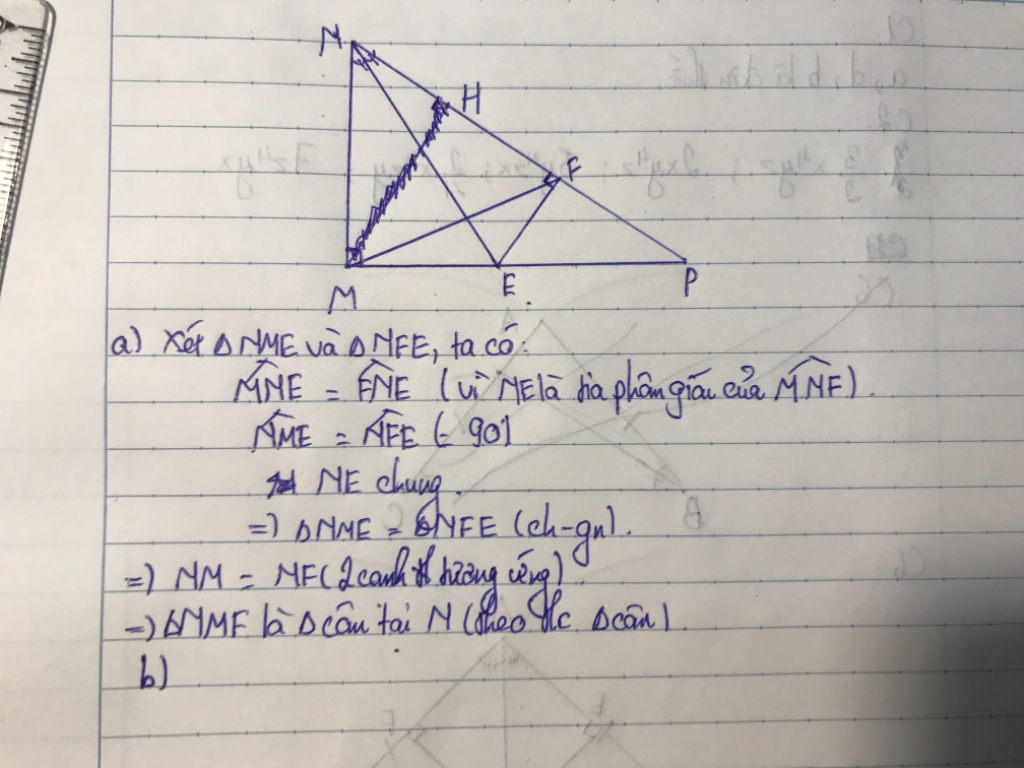 N
H
F
M
E
P
a) Xét ΔNME và ΔNFE, ta có:
M̂NE = F̂NE (vì NE là tia phân giác của M̂NF).
N̂ME = N̂FE (= 90)
NE chung.
=) ΔNME = ΔNFE (ch-gn).
=) NM = NF (2 cạnh tương ứng)
=) ΔNMF là Δ cân tại N (theo t/c Δ cân)
b)